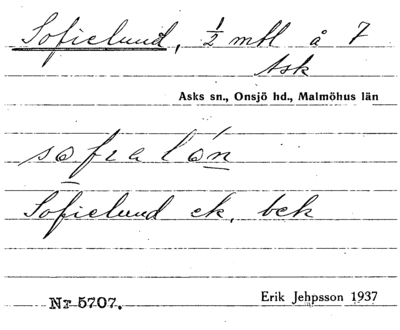 Sofielund, 1/2 mtl å 7
Ask
Asks sn., Onsjö hd., Malmöhus län
sofialón
Sofielund ek. bek
Nr 5707.
Erik Jehpsson 1937